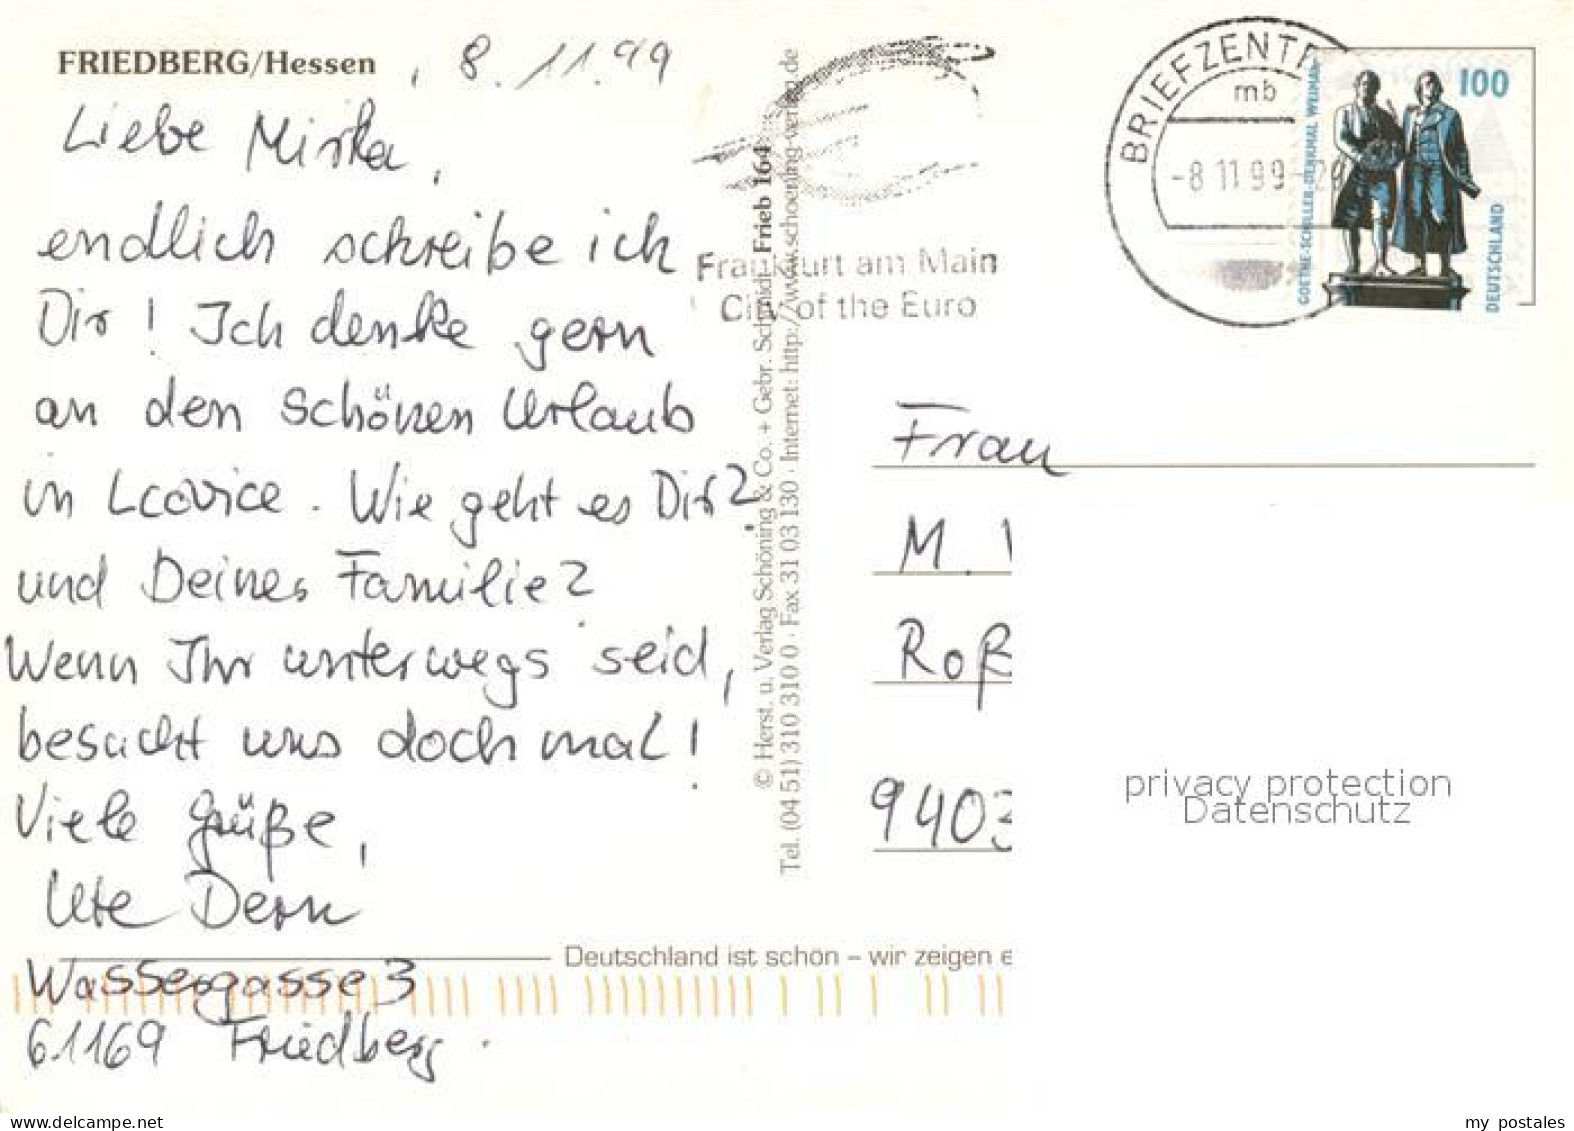 FRIEDBERG/Hessen , 8.11.99
Liebe Mirka,
endlich schreibe ich
Dir! Ich denke gern
an den schönen Urlaub
in Lcovice. Wie geht es Dir?
und Deiner Familie?
Wenn Ihr unterwegs seid,
besucht uns doch mal!
Viele Grüße,
Ute Dern
Wassergasse 3
61169 Friedberg.
Deutschland ist schön – wir zeigen e
© Herst. u. Verlag Schöning & Co. + Gebr. Schmidt Frieb 164
Tel. (04 51) 310 310 0 · Fax 31 03 130 · Internet: http://www.schoening-verlag.de
Frankfurt am Main
City of the Euro
BRIEFZENTR
mb
-8 11 99-
GOETHE-SCHILLER-DENKMAL WEIMAR
100
DEUTSCHLAND
Frau
M.
Roß
9403
privacy protection
Datenschutz
my postales